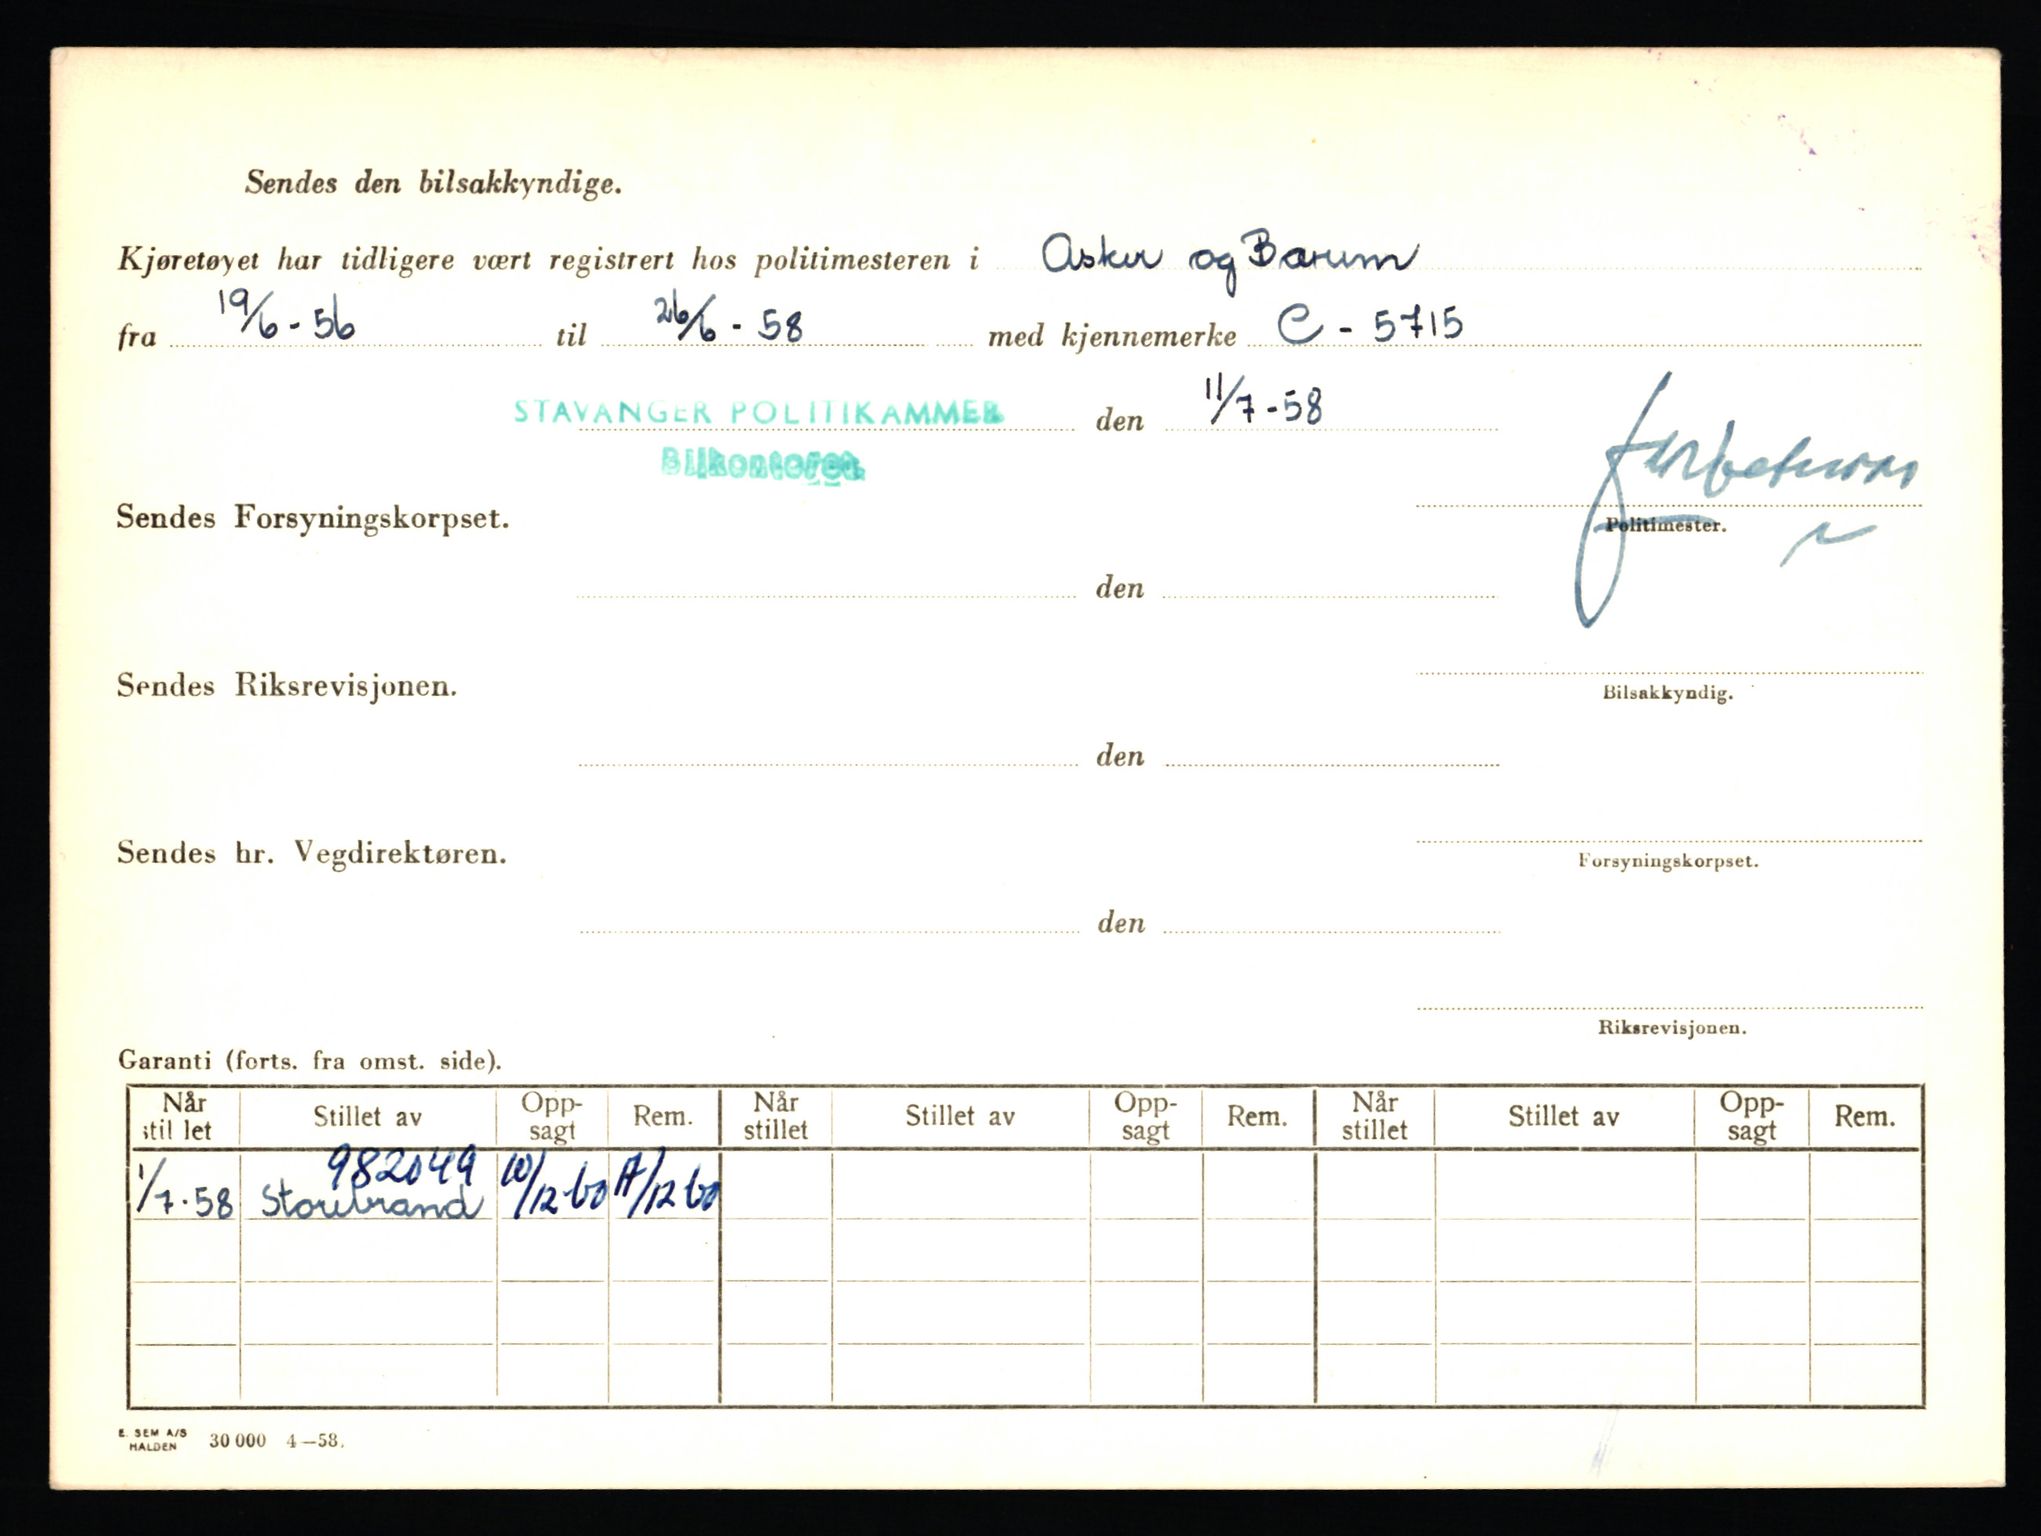 Sendes den bilsakkyndige.
Kjøretøyet har tidligere vært registrert hos politimesteren i Asker og Bærum
fra 19/6 - 56 til 26/6 - 58 med kjennemerke C - 5715
STAVANGER POLITIKAMMER den 11/7 - 58
Bilkontoret.
Sendes Forsyningskorpset.
Politimester.
den
Sendes Riksrevisjonen.
Bilsakkyndig.
den
Sendes hr. Vegdirektøren.
Forsyningskorpset.
den
Riksrevisjonen.
Garanti (forts. fra omst. side).
Når stillet Stillet av Opp-sagt Rem. Når stillet Stillet av Opp-sagt Rem. Når stillet Stillet av Opp-sagt Rem.
982049
1/7.58 Storebrand 10/12-60 /12 60
E. SEM A/S
HALDEN 30 000 4—58.